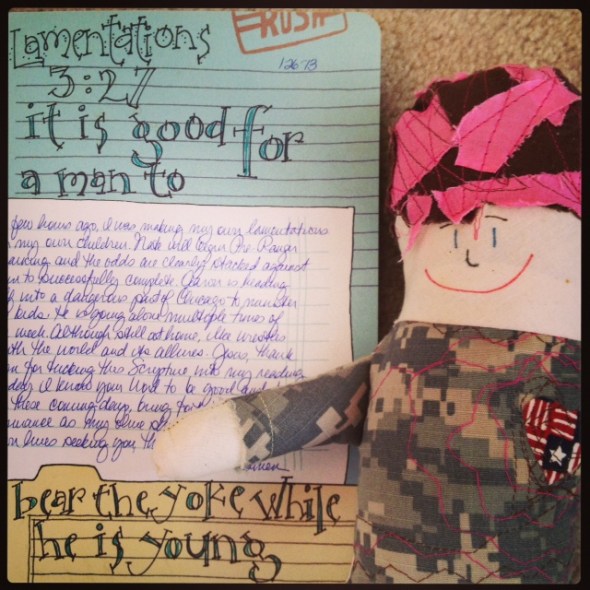 Lamentations
RUSH
12673
3:27
it is good for
a man to
few hours ago, I was making my own lamentations
my own children. Nate will begin Pre-Ranger
training and the odds are clearly stacked against
to successfully complete. is heading
into a dangerous part of Chicago to minister
kids. He is going alone multiple times
week. Although still at home, wrestles
the world and its allures. Jesus, thank
for tucking this Scripture into my reading
day. I know you Lord to be good and
these coming days, bring
as my
lives seeking you.
Amen
bear the yoke while
he is young